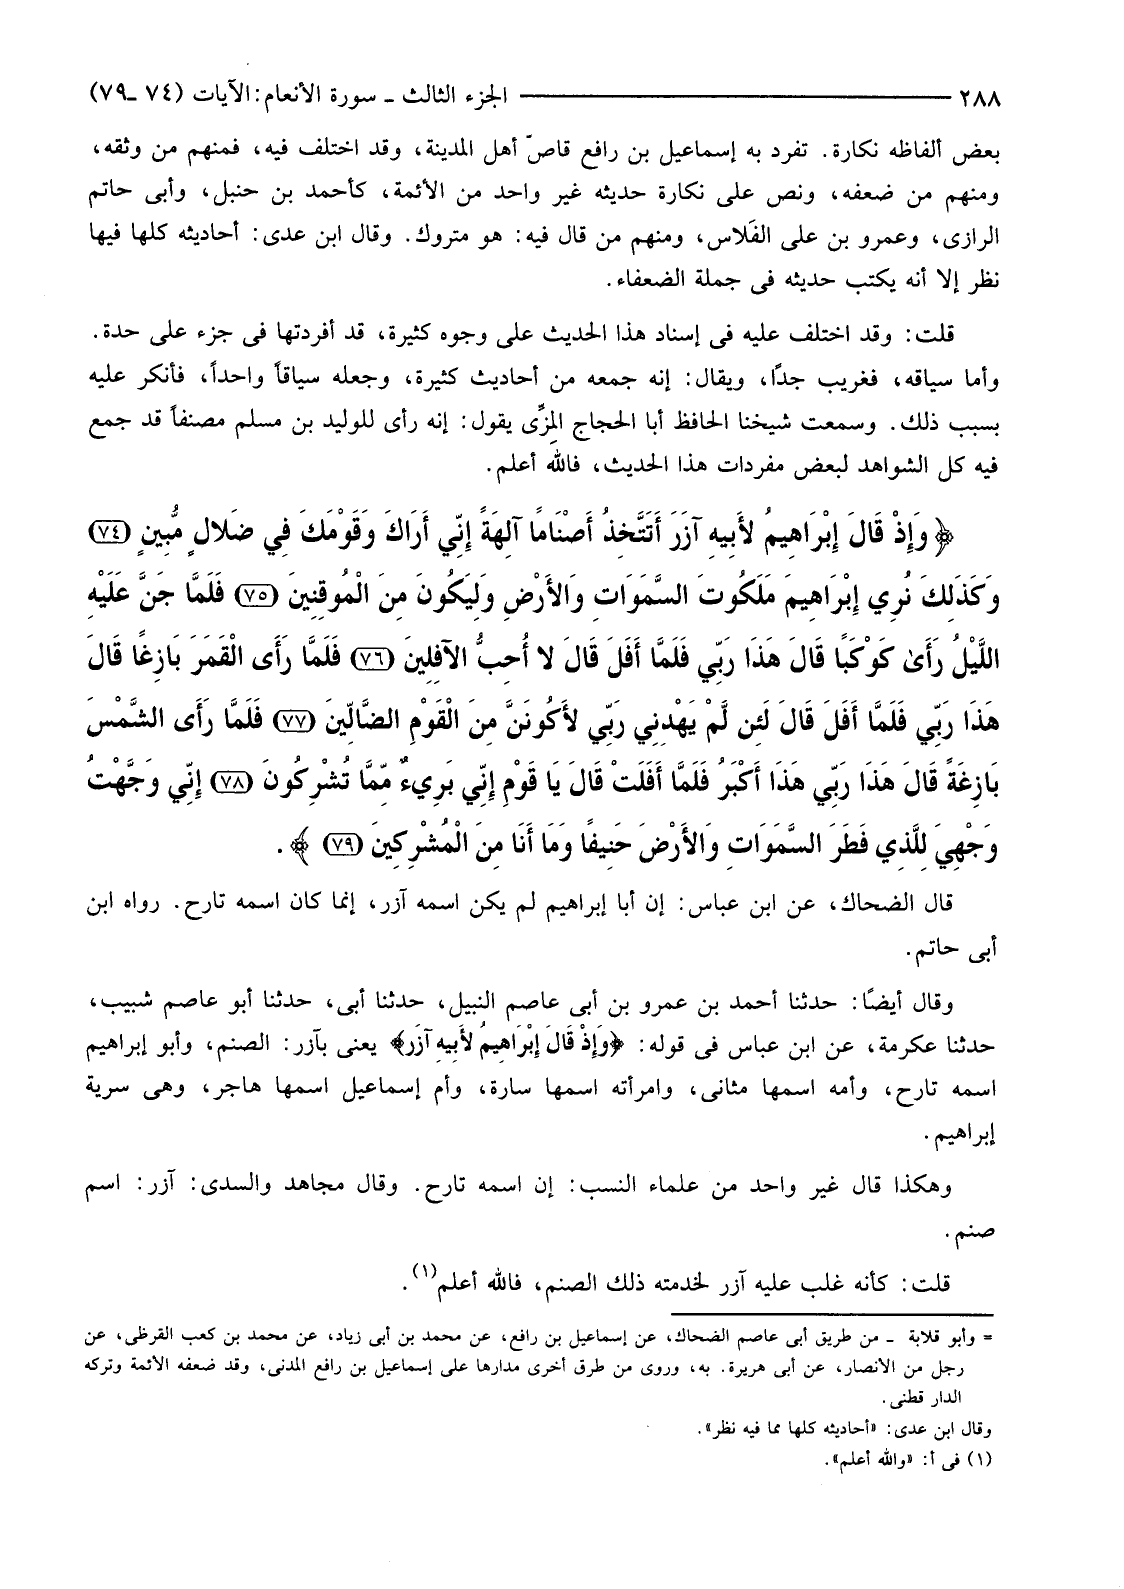 ٢٨٨ ـــــــــــــــــ الجزء الثالث ـ سورة الأنعام: الآيات (٧٤ ـ٧٩)
بعض ألفاظه نكارة. تفرد به إسماعيل بن رافع قاصّ أهل المدينة، وقد اختلف فيه، فمنهم من وثقه،
ومنهم من ضعفه، ونص على نكارة حديثه غير واحد من الأئمة، كأحمد بن حنبل، وأبى حاتم
الرازى، وعمرو بن على الفَلاس، ومنهم من قال فيه: هو متروك. وقال ابن عدى: أحاديثه كلها فيها
نظر إلا أنه يكتب حديثه فى جملة الضعفاء.
قلت: وقد اختلف عليه فى إسناد هذا الحديث على وجوه كثيرة، قد أفردتها فى جزء على حدة.
وأما سياقه، فغريب جدًا، ويقال: إنه جمعه من أحاديث كثيرة، وجعله سياقاً واحداً، فأنكر عليه
بسبب ذلك. وسمعت شيخنا الحافظ أبا الحجاج المِزِّى يقول: إنه رأى للوليد بن مسلم مصنفاً قد جمع
فيه كل الشواهد لبعض مفردات هذا الحديث، فالله أعلم.
﴿ وَإِذْ قَالَ إِبْرَاهِيمُ لأَبِيهِ آزَرَ أَتَتَّخِذُ أَصْنَامًا آلِهَةً إِنِّي أَرَاكَ وَقَوْمَكَ فِي ضَلالٍ مُّبِينٍ (٧٤)
وَكَذَلِكَ نُرِي إِبْرَاهِيمَ مَلَكُوتَ السَّمَوَاتِ وَالأَرْضِ وَلِيَكُونَ مِنَ الْمُوقِنِينَ (٧٥) فَلَمَّا جَنَّ عَلَيْهِ
اللَّيْلُ رَأَىٰ كَوْكَبًا قَالَ هَذَا رَبِّي فَلَمَّا أَفَلَ قَالَ لا أُحِبُّ الآفِلِينَ (٧٦) فَلَمَّا رَأَى الْقَمَرَ بَازِغًا قَالَ
هَذَا رَبِّي فَلَمَّا أَفَلَ قَالَ لَئِن لَّمْ يَهْدِنِي رَبِّي لأَكُونَنَّ مِنَ الْقَوْمِ الضَّالِّينَ (٧٧) فَلَمَّا رَأَى الشَّمْسَ
بَازِغَةً قَالَ هَذَا رَبِّي هَذَا أَكْبَرُ فَلَمَّا أَفَلَتْ قَالَ يَا قَوْمِ إِنِّي بَرِيءٌ مِّمَّا تُشْرِكُونَ (٧٨) إِنِّي وَجَّهْتُ
وَجْهِيَ لِلَّذِي فَطَرَ السَّمَوَاتِ وَالأَرْضَ حَنِيفًا وَمَا أَنَا مِنَ الْمُشْرِكِينَ (٧٩) ﴾ .
قال الضحاك، عن ابن عباس: إن أبا إبراهيم لم يكن اسمه آزر، إنما كان اسمه تارح. رواه ابن
أبى حاتم.
وقال أيضًا: حدثنا أحمد بن عمرو بن أبى عاصم النبيل، حدثنا أبى، حدثنا أبو عاصم شبيب،
حدثنا عكرمة، عن ابن عباس فى قوله: ﴿وَإِذْ قَالَ إِبْرَاهِيمُ لأَبِيهِ آزَرَ﴾ يعنى بآزر: الصنم، وأبو إبراهيم
اسمه تارح، وأمه اسمها مثانى، وامرأته اسمها سارة، وأم إسماعيل اسمها هاجر، وهى سرية
إبراهيم.
وهكذا قال غير واحد من علماء النسب: إن اسمه تارح. وقال مجاهد والسدى: آزر: اسم
صنم.
قلت: كأنه غلب عليه آزر لخدمته ذلك الصنم، فالله أعلم(١).
= وأبو قلابة ـ من طريق أبى عاصم الضحاك، عن إسماعيل بن رافع، عن محمد بن أبى زياد، عن محمد بن كعب القرظى، عن
رجل من الأنصار، عن أبى هريرة. به، وروى من طرق أخرى مدارها على إسماعيل بن رافع المدنى، وقد ضعفه الأئمة وتركه
الدار قطنى.
وقال ابن عدى: «أحاديثه كلها مما فيه نظر».
(١) فى أ: «والله أعلم».